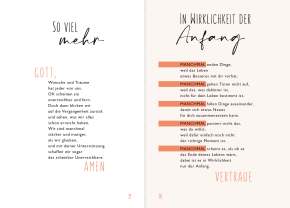 SO VIEL
mehr
GOTT,
Wünsche und Träume
hat jeder von uns.
Oft scheinen sie
unerreichbar und fern.
Doch dann blicken wir
auf die Vergangenheit zurück
und sehen, was wir alles
schon erreicht haben.
Wir sind manchmal
stärker und mutiger,
als wir glauben,
und mit deiner Unterstützung
schaffen wir sogar
das scheinbar Unerreichbare.
AMEN
IN WIRKLICHKEIT DER
Anfang
MANCHMAL enden Dinge,
weil das Leben
etwas Besseres mit dir vorhat.
MANCHMAL gehen Türen nicht auf,
weil das, was dahinter ist,
nicht für dein Leben bestimmt ist.
MANCHMAL fallen Dinge auseinander,
damit sich etwas Neues
für dich zusammensetzen kann.
MANCHMAL passiert nicht das,
was du willst,
weil dafür einfach noch nicht
der richtige Moment ist.
MANCHMAL scheint es, als ob es
das Ende deines Lebens wäre,
dabei ist es in Wirklichkeit
nur der Anfang.
VERTRAUE